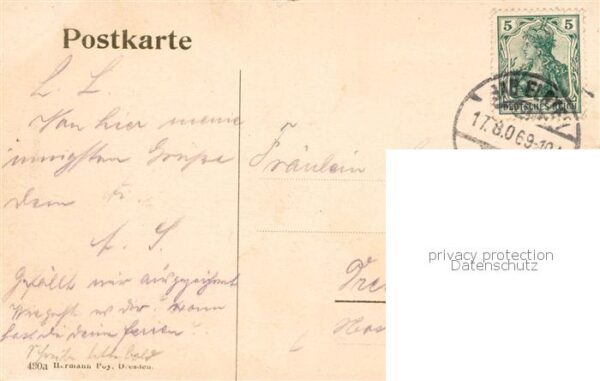 Postkarte
5 5
DEUTSCHES REICH
BAD ELSTER
17.8.06 9-10
L. L.
Von hier meine
innigsten Grüße
dein
A. S.
Gefällt mir ausgezeichnet
Wie geht es dir? wann
hast du deine Ferien?
Schreibe bitte bald
Fräulein
Dre
privacy protection
Datenschutz
490a Hermann Poy, Dresden.